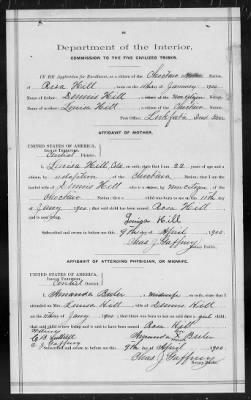 Department of the Interior,
COMMISSION TO THE FIVE CIVILIZED TRIBES.
IN RE Application for Enrollment, as a citizen of the Choctaw Nation,
of Rosa Hill, born on the 11th day of January, 1900
Name of father: Dennis Hill, a citizen of the Nation.
Name of mother: Louisa Hill, a citizen of the Choctaw Nation.
Post Office: Lukfata Ind. Ter.
AFFIDAVIT OF MOTHER.
UNITED STATES OF AMERICA,
INDIAN TERRITORY,
Central District.
I, Louisa Hill, on oath, state that I am 22 years of age and a
citizen, by adoption, of the Choctaw Nation; that I am the
lawful wife of Dennis Hill, who is a citizen, by of the
Choctaw Nation; that a child was born to me on the 11th day
of Jany 1900; that said child has been named Rosa Hill
and is now living.
Louisa Hill
Subscribed and sworn to before me this 9th day of April 1900
Chas J Gaffney
Notary Public.
AFFIDAVIT OF ATTENDING PHYSICIAN, OR MIDWIFE.
UNITED STATES OF AMERICA,
INDIAN TERRITORY,
Central District.
I, Amanda, a midwife, on oath, state that I
attended on Mrs. Louisa Hill, wife of Dennis Hill on
the 11th day of Jany 1900; that there was born to her on said date a girl child;
that said child is now living and is said to have been named Rosa Hill
Amanda
Subscribed and sworn to before me this 9th day of April 1900
Chas J Gaffney